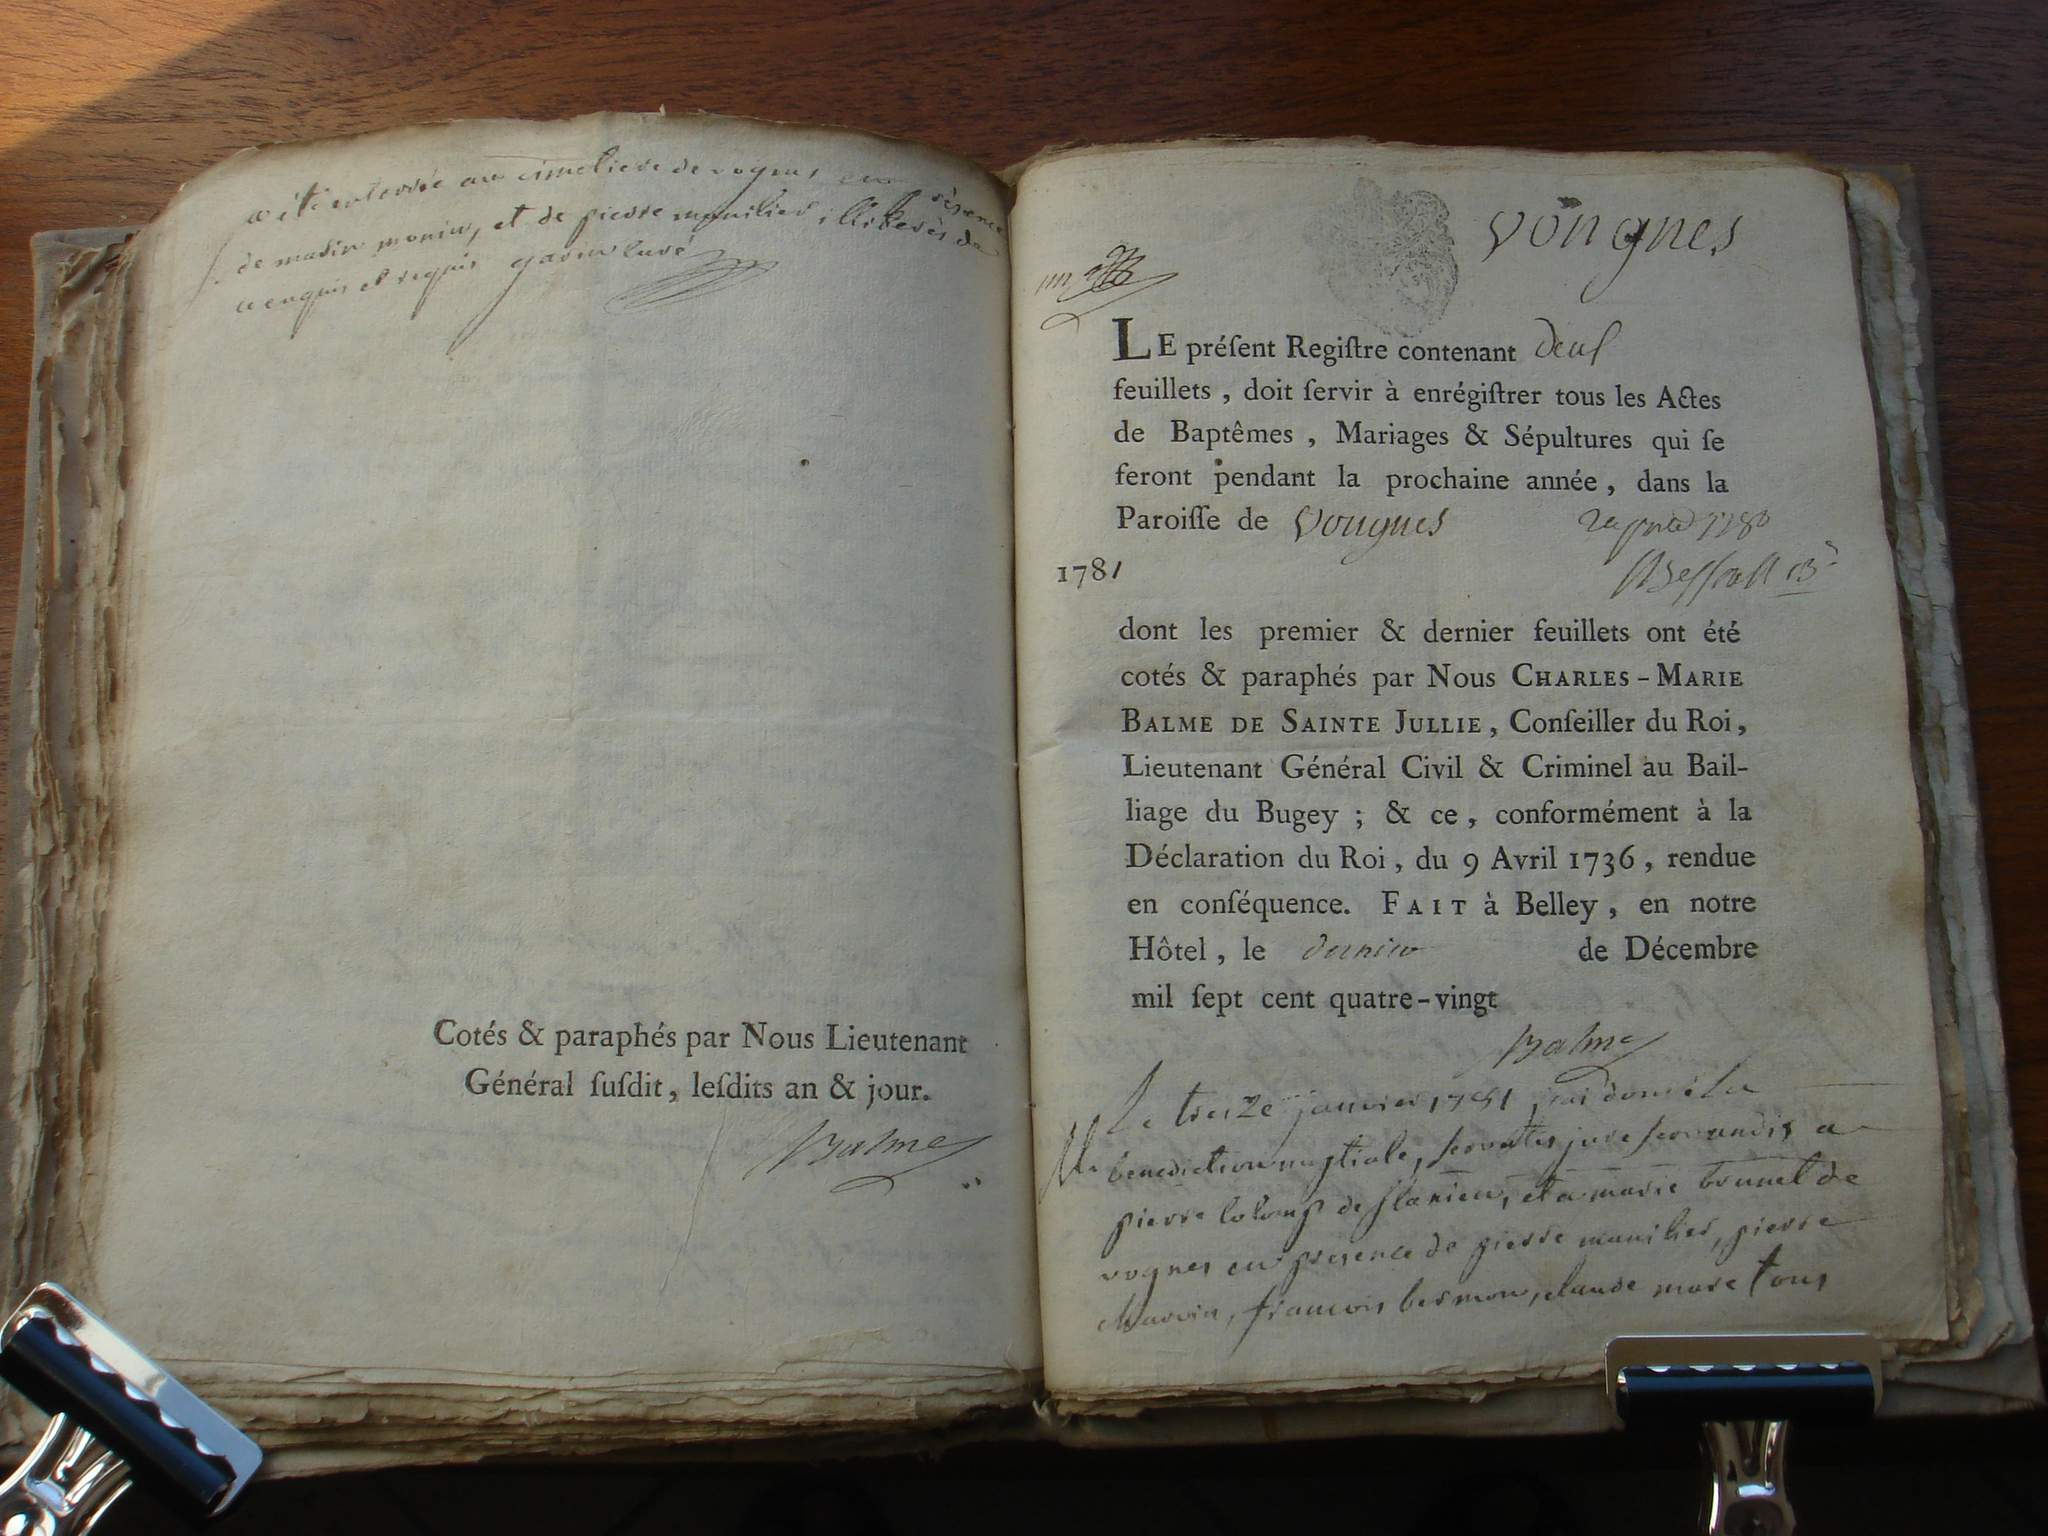 a été enterrée au cimetiere de vognes en présence
de madin monin, et de pierre manilier illiterés de
ce enquis et requis garin curé
Cotés & paraphés par Nous Lieutenant
Général ſuſdit, leſdits an & jour.
Balme
vongnes
LE préſent Regiſtre contenant deux
feuillets, doit ſervir à enrégiſtrer tous les Actes
de Baptêmes, Mariages & Sépultures qui ſe
feront pendant la prochaine année, dans la
Paroiſſe de Vougnes
1780
1781
dont les premier & dernier feuillets ont été
cotés & paraphés par Nous CHARLES-MARIE
BALME DE SAINTE JULLIE, Conſeiller du Roi,
Lieutenant Général Civil & Criminel au Bail-
liage du Bugey ; & ce, conformément à la
Déclaration du Roi, du 9 Avril 1736, rendue
en conſéquence. FAIT à Belley, en notre
Hôtel, le dernier de Décembre
mil ſept cent quatre-vingt
Balme
Le treize janvier 1781 j'ai donné la
M. benediction nuptiale, servatis jure servandis a
pierre de flaxieu, et a marie brunet de
vognes en presence de pierre manilier, pierre
francois bermon, claude mare tous